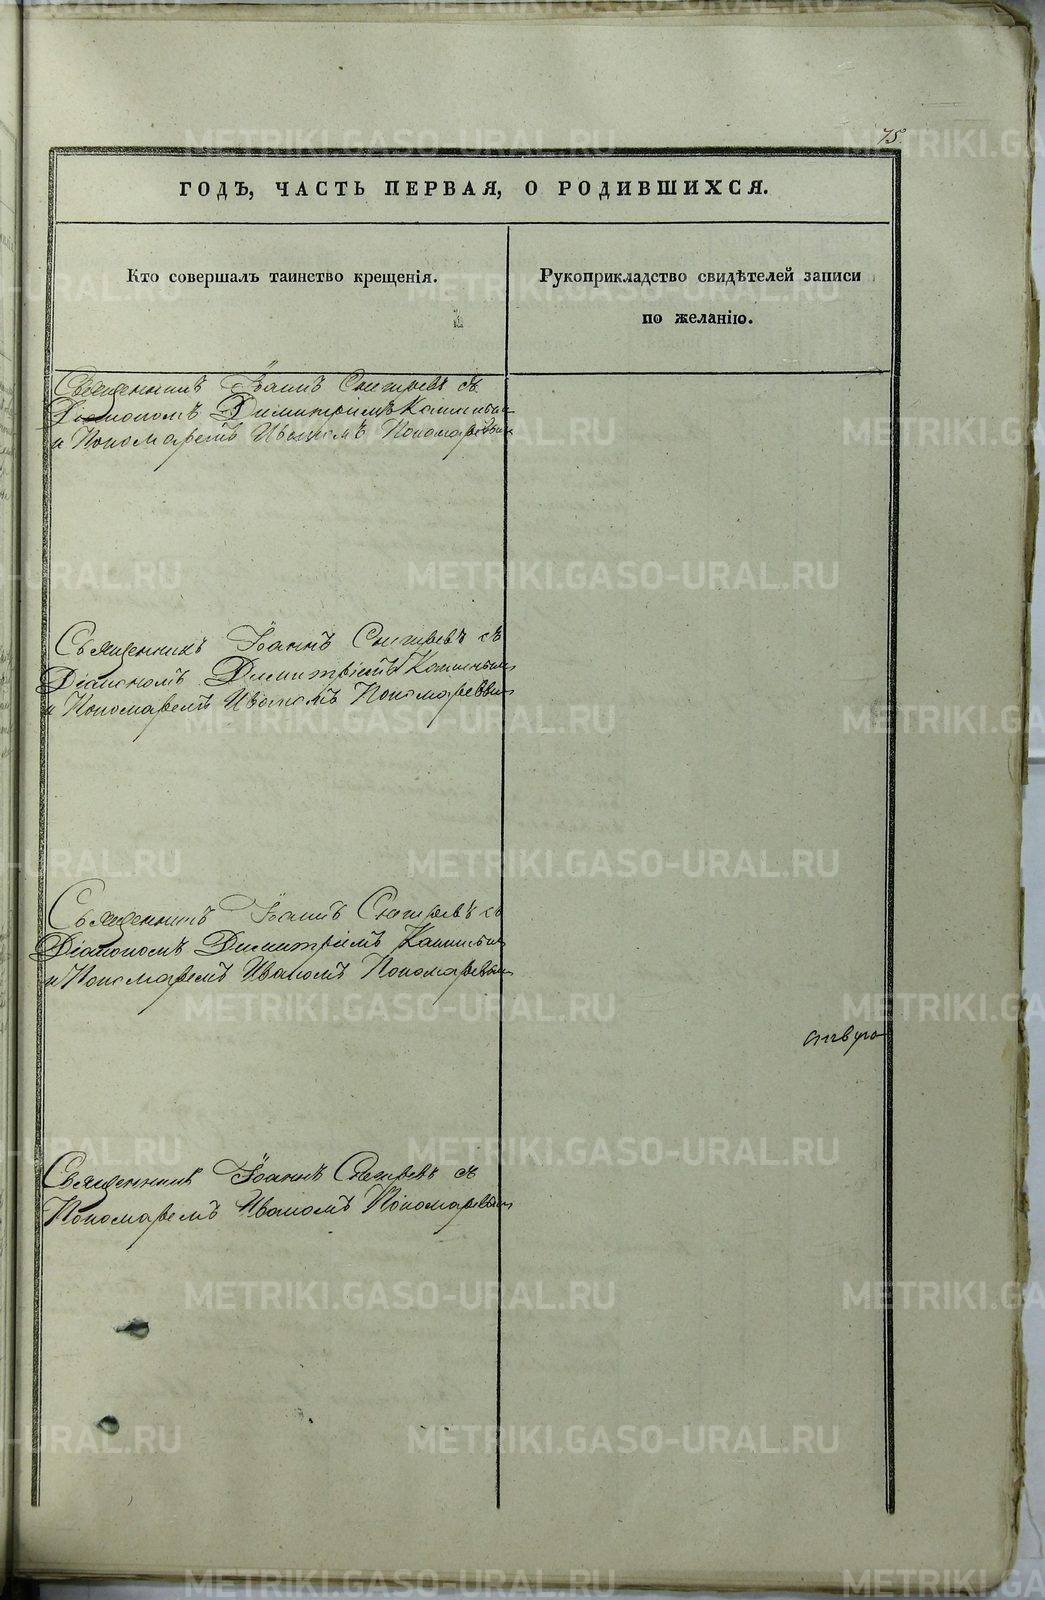 75.
ГОДЪ, ЧАСТЬ ПЕРВАЯ, О РОДИВШИХСЯ.
Кто совершалъ таинство крещенія.
Рукоприкладство свидѣтелей записи
по желанію.
Священникъ Іоаннъ Снегиревъ съ
Діакономъ Димитріемъ
и Пономаремъ Иваномъ Пономаревым
Священникъ Іоаннъ Снегиревъ съ
Діакономъ Димитріемъ
и Пономаремъ Иваномъ Пономаревым
Священникъ Іоаннъ Снегиревъ съ
Діакономъ Димитріемъ
и Пономаремъ Иваномъ Пономаревым
Священникъ Іоаннъ Снегиревъ съ
Пономаремъ Иваномъ Пономаревым
METRIKI.GASO-URAL.RU